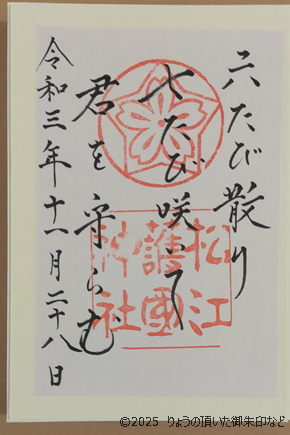 六たび散り
七たび咲いて
君を守らむ
令和三年十一月二十八日
松江
護國
神社
©2025 りょうの頂いた御朱印など